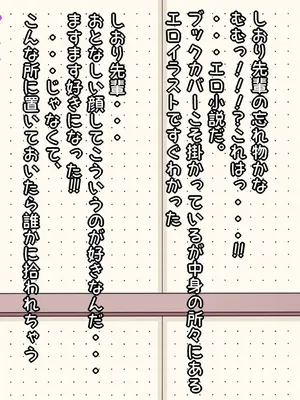 しおり先輩の忘れ物かな
むむっ！！！？これはっ・・・!!
・・・エロ小説だ。
ブックカバーこそ掛かっているが中身の所々にある
エロイラストですぐわかった
しおり先輩・・・
おとなしい顔してこういうのが好きなんだ・・・
ますます好きになった!!
・・・じゃなくて、
こんな所に置いておいたら誰かに拾われちゃう